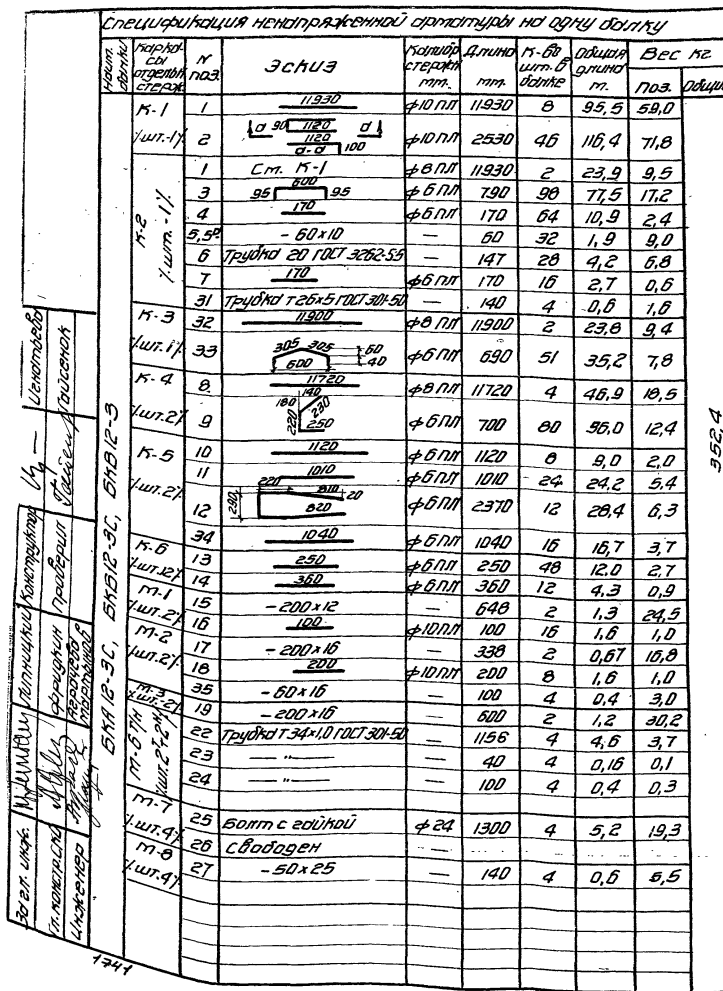 Спецификация ненапряженной арматуры на одну балку
Наим. балки | Каркасы отдельн. стерж. | N поз. | Эскиз | Калибр стержн. мм. | Длина мм. | К-во шт. в балке | Общая длина м. | Вес кг
Поз. | Общий
БКА 12-3С, БКБ 12-3С, БКВ 12-3
К-1 | 1 | 11930 | ф10 ПЛ | 11930 | 8 | 95,5 | 59,0
/шт.-1/ | 2 | а 90 1120 а 1120 а-а 100 | ф10 ПЛ | 2530 | 46 | 116,4 | 71,8
К-2 | 1 | См. К-1 | ф8 ПЛ | 11930 | 2 | 23,9 | 9,5
/шт.-1/ | 3 | 95 600 95 | ф6 ПЛ | 790 | 98 | 77,5 | 17,2
4 | 170 | ф6 ПЛ | 170 | 64 | 10,9 | 2,4
5,5ª | - 60×10 | — | 60 | 32 | 1,9 | 9,0
6 | Трубка 20 ГОСТ 3262-55 | — | 147 | 28 | 4,2 | 6,8
7 | 170 | ф6 ПЛ | 170 | 16 | 2,7 | 0,6
31 | Трубка Т 26×5 ГОСТ 301-50 | — | 140 | 4 | 0,6 | 1,6
К-3 | 32 | 11900 | ф8 ПЛ | 11900 | 2 | 23,8 | 9,4
/шт.1/ | 33 | 305 305 60 40 600 | ф6 ПЛ | 690 | 51 | 35,2 | 7,8
К-4 | 8 | 11720 | ф8 ПЛ | 11720 | 4 | 46,9 | 18,5
/шт.2/ | 9 | 180 140 230 220 250 | ф6 ПЛ | 700 | 80 | 56,0 | 12,4
К-5 | 10 | 1120 | ф6 ПЛ | 1120 | 8 | 9,0 | 2,0
/шт.2/ | 11 | 1010 | ф6 ПЛ | 1010 | 24 | 24,2 | 5,4
12 | 220 810 20 290 820 | ф6 ПЛ | 2370 | 12 | 28,4 | 6,3
34 | 1040 | ф6 ПЛ | 1040 | 16 | 16,7 | 3,7
К-6 | 13 | 250 | ф6 ПЛ | 250 | 48 | 12,0 | 2,7
/шт.12/ | 14 | 360 | ф6 ПЛ | 360 | 12 | 4,3 | 0,9
М-1 | 15 | - 200×12 | — | 648 | 2 | 1,3 | 24,5
/шт.2/ | 16 | 100 | ф10 ПЛ | 100 | 16 | 1,6 | 1,0
М-2 | 17 | - 200×16 | — | 338 | 2 | 0,67 | 16,8
/шт.2/ | 18 | 200 | ф10 ПЛ | 200 | 8 | 1,6 | 1,0
М-3 /шт.2/ | 35 | - 60×16 | — | 100 | 4 | 0,4 | 3,0
М-6 | 19 | - 200×16 | — | 600 | 2 | 1,2 | 30,2
22 | Трубка Т 34×1,0 ГОСТ 301-50 | — | 1156 | 4 | 4,6 | 3,7
23 | — " — | — | 40 | 4 | 0,16 | 0,1
24 | — " — | — | 100 | 4 | 0,4 | 0,3
М-7 | 25 | Болт с гайкой | ф 24 | 1300 | 4 | 5,2 | 19,3
/шт.4/ | 26 | Свободен | —
М-8 /шт.4/ | 27 | - 50×25 | — | 140 | 4 | 0,6 | 5,5
352,4
Игнатьева
Гайсенок
Конструктор
Проверил
Зав гл. инж. Липницкий
Гл. констр. СКО Фридкин
Инженер
1741